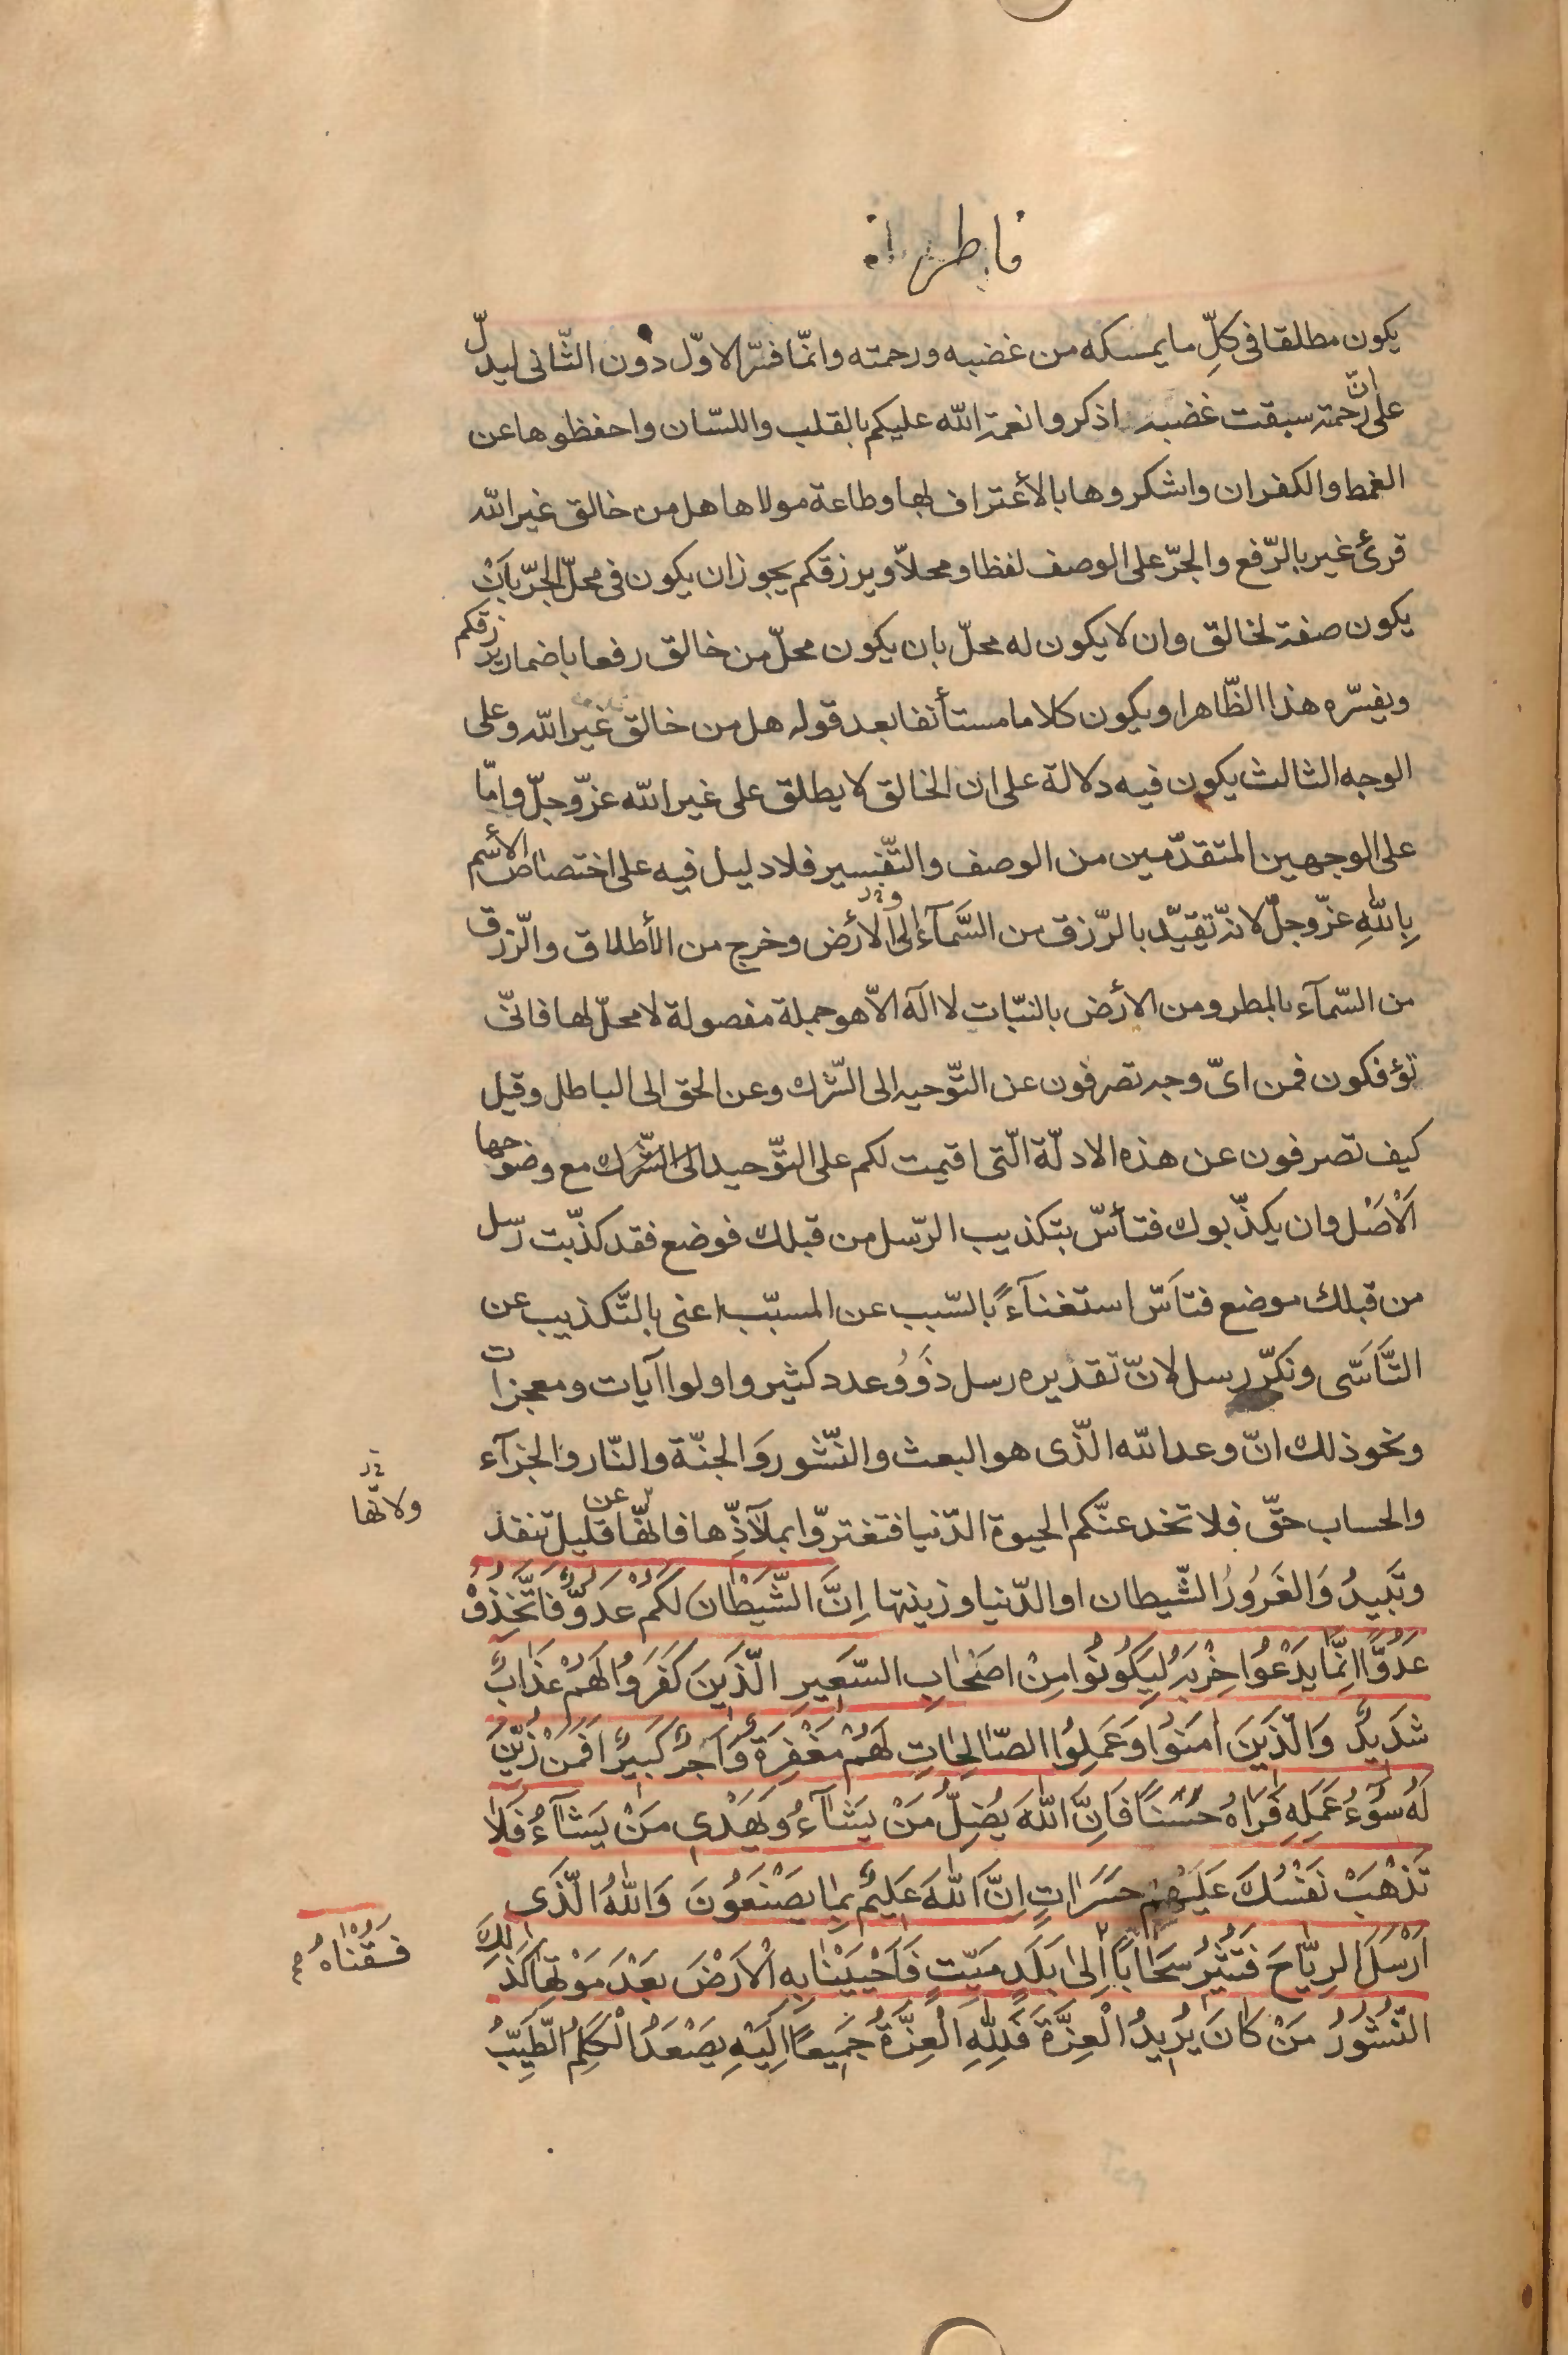 فاطر
يكون مطلقا فى كلّ ما يمسكه من غضبه ورحمته وانمّا فسّر الاوّل دون الثّانى ليدلّ
على انّ رحمته سبقت غضبه اذكروا نعمة الله عليكم بالقلب واللسّان واحفظوها عن
الغمط والكفران واشكروها بالأعتراف بها وطاعة مولاها هل من خالق غير الله
قرئ غير بالرّفع والجرّ على الوصف لفظا ومحلاّ ويرزقكم يجوز ان يكون فى محلّ الجرّ بان
يكون صفة لخالق وان لا يكون له محلّ بان يكون محلّ من خالق رفعا باضمار يرزقكم
ويفسّره هذا الظّاهر او يكون كلاما مستأنفا بعد قوله هل من خالق غير الله وعلى
الوجه الثالث يكون فيه دلالة على ان الخالق لا يطلق على غير الله عزّوجلّ وامّا
على الوجهين المتقدّمين من الوصف والتّفسير فلا دليل فيه على اختصاص الأسم
بِاللهِ عزّوجلّ لانه تقيّد بالرّزق من السَّمآء الى الأرض وخرج من الأطلاق والرّزق
من السّمآء بالمطر ومن الأرض بالنبّات لا اله الاّ هو جملة مفصولة لا محلّ لها فانّى
تؤفكون فمن اىّ وجه تصرفون عن التّوحيد الى الشّرك وعن الحق الى الباطل وقيل
كيف تصرفون عن هذه الادلّة الّتى اقيمت لكم على التّوحيد الى الشّرك مع وضوحها
اَلْاَصْل وان يكذّبوك فتأسّ بتكذيب الرّسل من قبلك فوضع فقد كذّبت رسل
من قبلك موضع فتاَسّ استغنآءً بالسّبب عن المسبّب اعنى بالتّكذيب عن
التَّاَسّى ونكّر رسل لانّ تقديره رسل ذَوُو عدد كثير واولوا آيات ومعجزات
ونحو ذلك انّ وعد الله الّذى هو البعث والنّشور وَالجنّة والنّار والجزآء
والحساب حقّ فلا تخدعنّكم الحيوة الدّنيا فتغترّوا بملآذِّها فانهّا عن قليل تنفد
ولانهّا
وتَبيدُ وَالغَرُورُ الشّيطان او الدّنيا وزينتها اِنَّ الشَّيْطانَ لَكُمْ عَدُوٌّ فَاتَّخِذُوهُ
عَدُوًّا اِنَّما يَدْعُوا حِزْبَهُ لِيَكُونُوا مِنْ اَصْحابِ السَّعِيرِ الَّذينَ كَفَرُوا لَهُمْ عَذابٌ
شَديدٌ وَالَّذينَ امَنُوا وَعَمِلُوا الصّالِحاتِ لَهُمْ مَغْفِرَةٌ وَاَجْرٌ كَبيرٌ اَفَمَنْ زُيِّنَ
لَهُ سُوءُ عَمَلِهِ فَرَاهُ حَسَنًا فَاِنَّ اللهَ يُضِلُّ مَنْ يَشآءُ وَيَهْدى مَنْ يَشآءُ فَلا
تَذْهَبْ نَفْسُكَ عَلَيْهِمْ حَسَراتٍ اِنَّ اللهَ عَليمٌ بِما يَصْنَعُونَ وَاللهُ الَّذى
اَرْسَلَ الرِّياحَ فَتُثيرُ سَحابًا اِلى بَلَدٍ مَيِّتٍ فَاَحْيَيْنا بِهِ الْاَرْضَ بَعْدَ مَوْتِها كَذلِكَ
فَسُقْناهُ
النُّشُورُ مَنْ كانَ يُريدُ الْعِزَّةَ فَلِلّهِ الْعِزَّةُ جَميعًا اِلَيْهِ يَصْعَدُ الْكَلِمُ الطَّيِّبُ